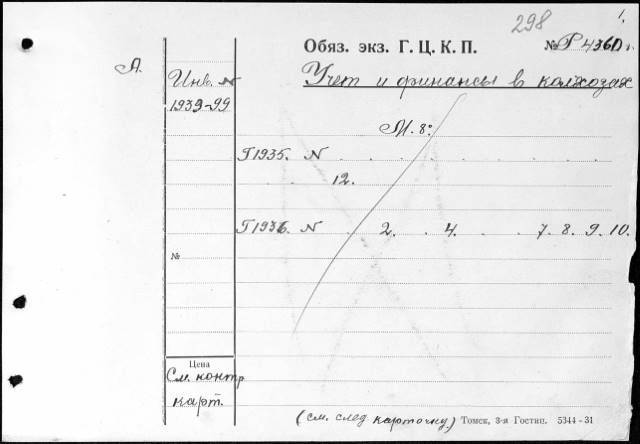 298
1.
Обяз. экз. Г. Ц. К. П. № Р 4360
А.
Инв. N
1939-99
Учет и финансы в колхозах
М. 8:
Г1935. N . . . . . . .
. . 12. . . . . . . .
Г1936. N . 2. . 4. . . 7. 8. 9. 10.
№
Цена
См. контр
карт.
(см. след карточку) Томск, 3-я Гостип. 5344-31